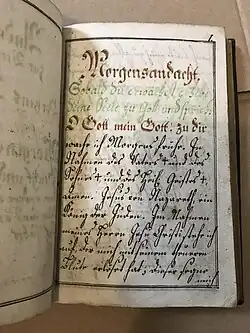 Morgensandacht,
Sobald du erwachest
Deine Seele zu Gott und sprich
O Gott mein Gott, zu dir
wach ich Morgens frühe. Im
Nahmen des Vaters † und des
Sohns † und des Heil. Geistes †.
Amen. Jesus von Nazareth ein
König der Juden. Im Nahmen
meines Herrn Jesu Christi steh ich
auf, der mich mit seinem theuren
Blute erlöset hat; dieser segne
mich